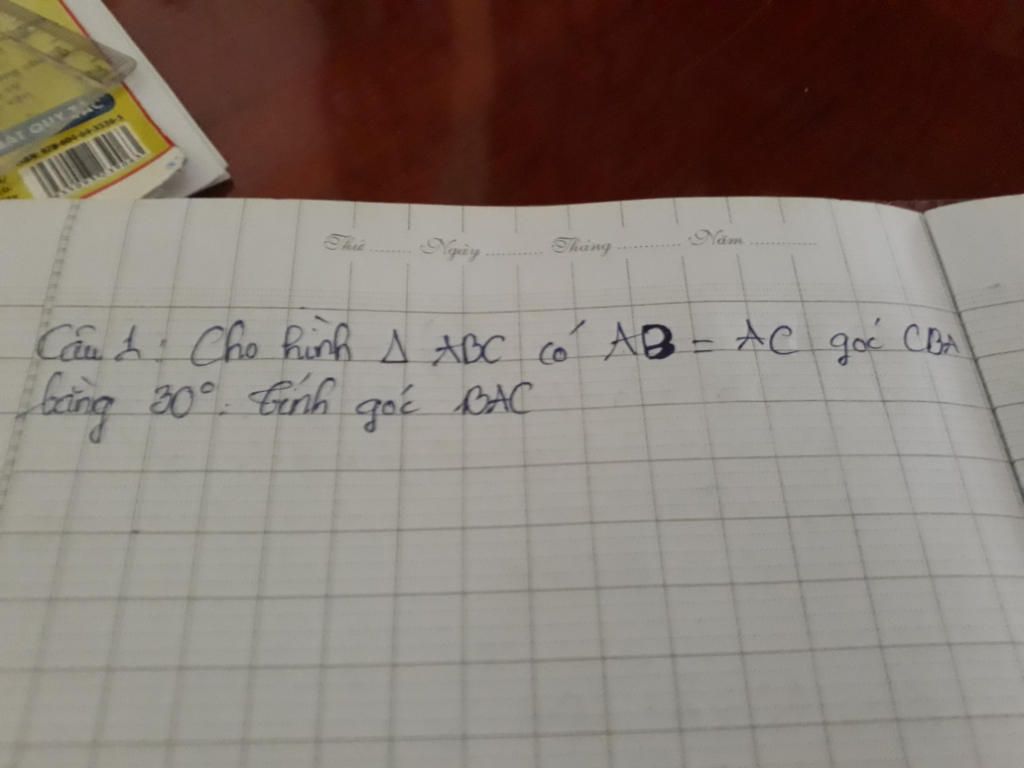 BẬT QUY TẮC
Thứ ........ Ngày ........... Tháng ............ Năm .............
Câu 1: Cho hình Δ ABC có AB = AC góc CBA
bằng 30°. tính góc BAC